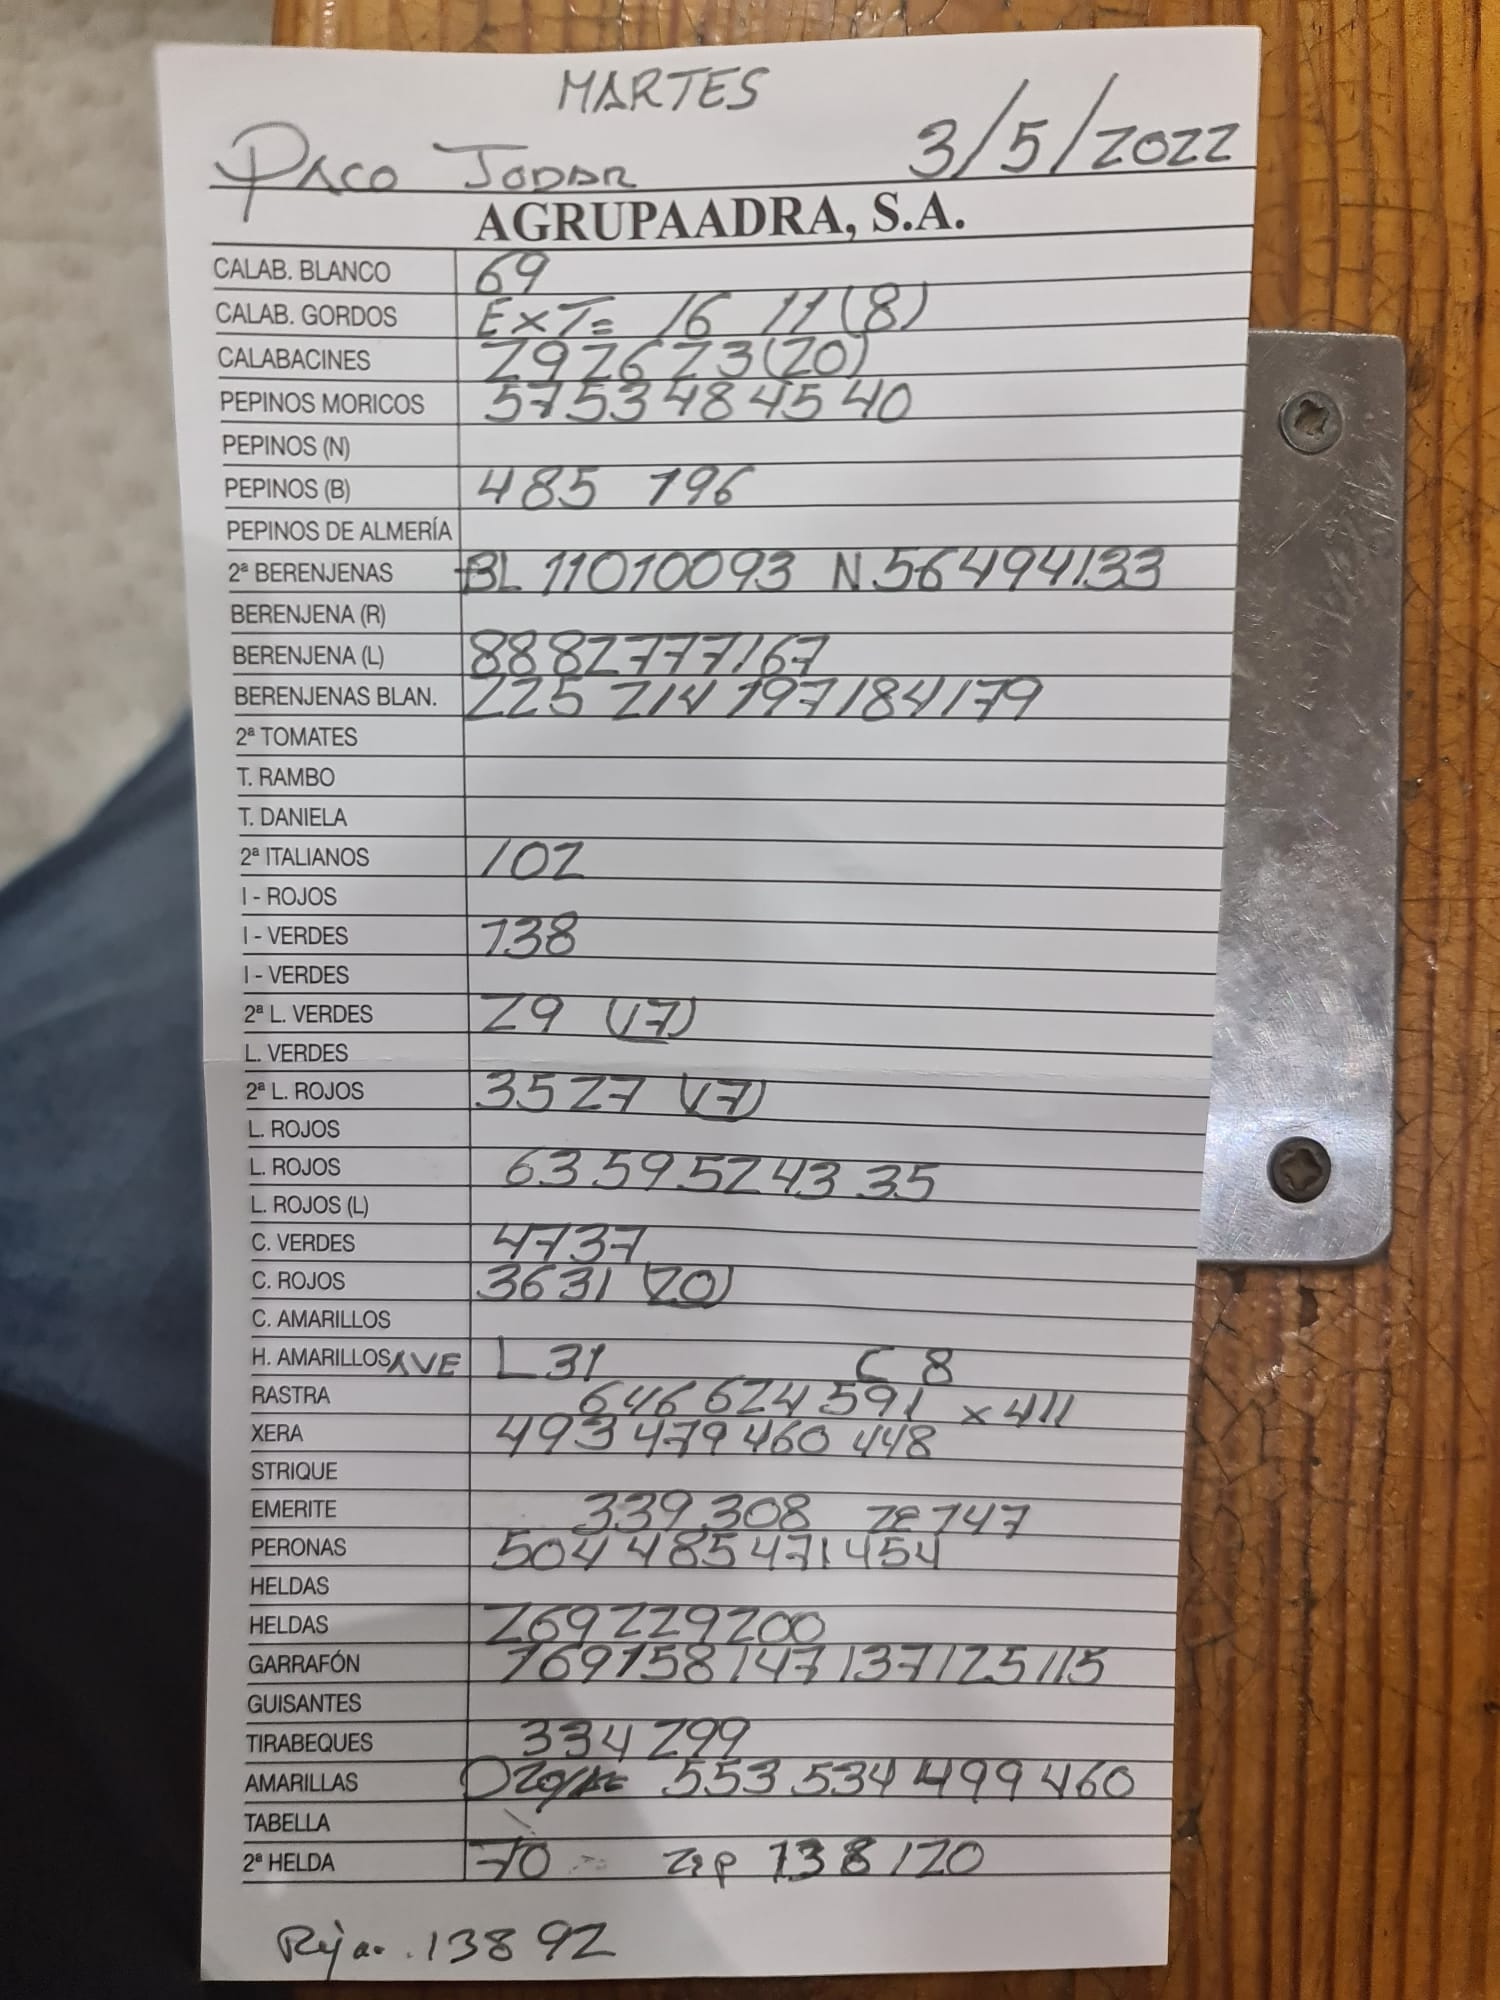 MARTES
PACO JODAR 3/5/2022
AGRUPAADRA, S.A.
CALAB. BLANCO 69
CALAB. GORDOS EXT= 16 11 (8)
CALABACINES 29 26 23 (20)
PEPINOS MORICOS 57 53 48 45 40
PEPINOS (N)
PEPINOS (B) 485 196
PEPINOS DE ALMERÍA
2ª BERENJENAS BL 110 100 93 N 56 49 41 33
BERENJENA (R)
BERENJENA (L) 88 82 77 71 67
BERENJENAS BLAN. 225 214 197 184 179
2ª TOMATES
T. RAMBO
T. DANIELA
2ª ITALIANOS 102
I - ROJOS
I - VERDES 138
I - VERDES
2ª L. VERDES 29 (17)
L. VERDES
2ª L. ROJOS 35 27 (17)
L. ROJOS
L. ROJOS 63 59 52 43 35
L. ROJOS (L)
C. VERDES 47 37
C. ROJOS 36 31 (20)
C. AMARILLOS
H. AMARILLOS AVE L 31 C 8
RASTRA 646 624 591 x 411
XERA 493 479 460 448
STRIQUE
EMERITE 339 308 2E 147
PERONAS 504 485 471 454
HELDAS
HELDAS 269 229 200
GARRAFÓN 169 158 147 137 125 115
GUISANTES
TIRABEQUES 334 299
AMARILLAS 553 534 499 460
TABELLA
2ª HELDA 70 138 120
Roja. 138 92